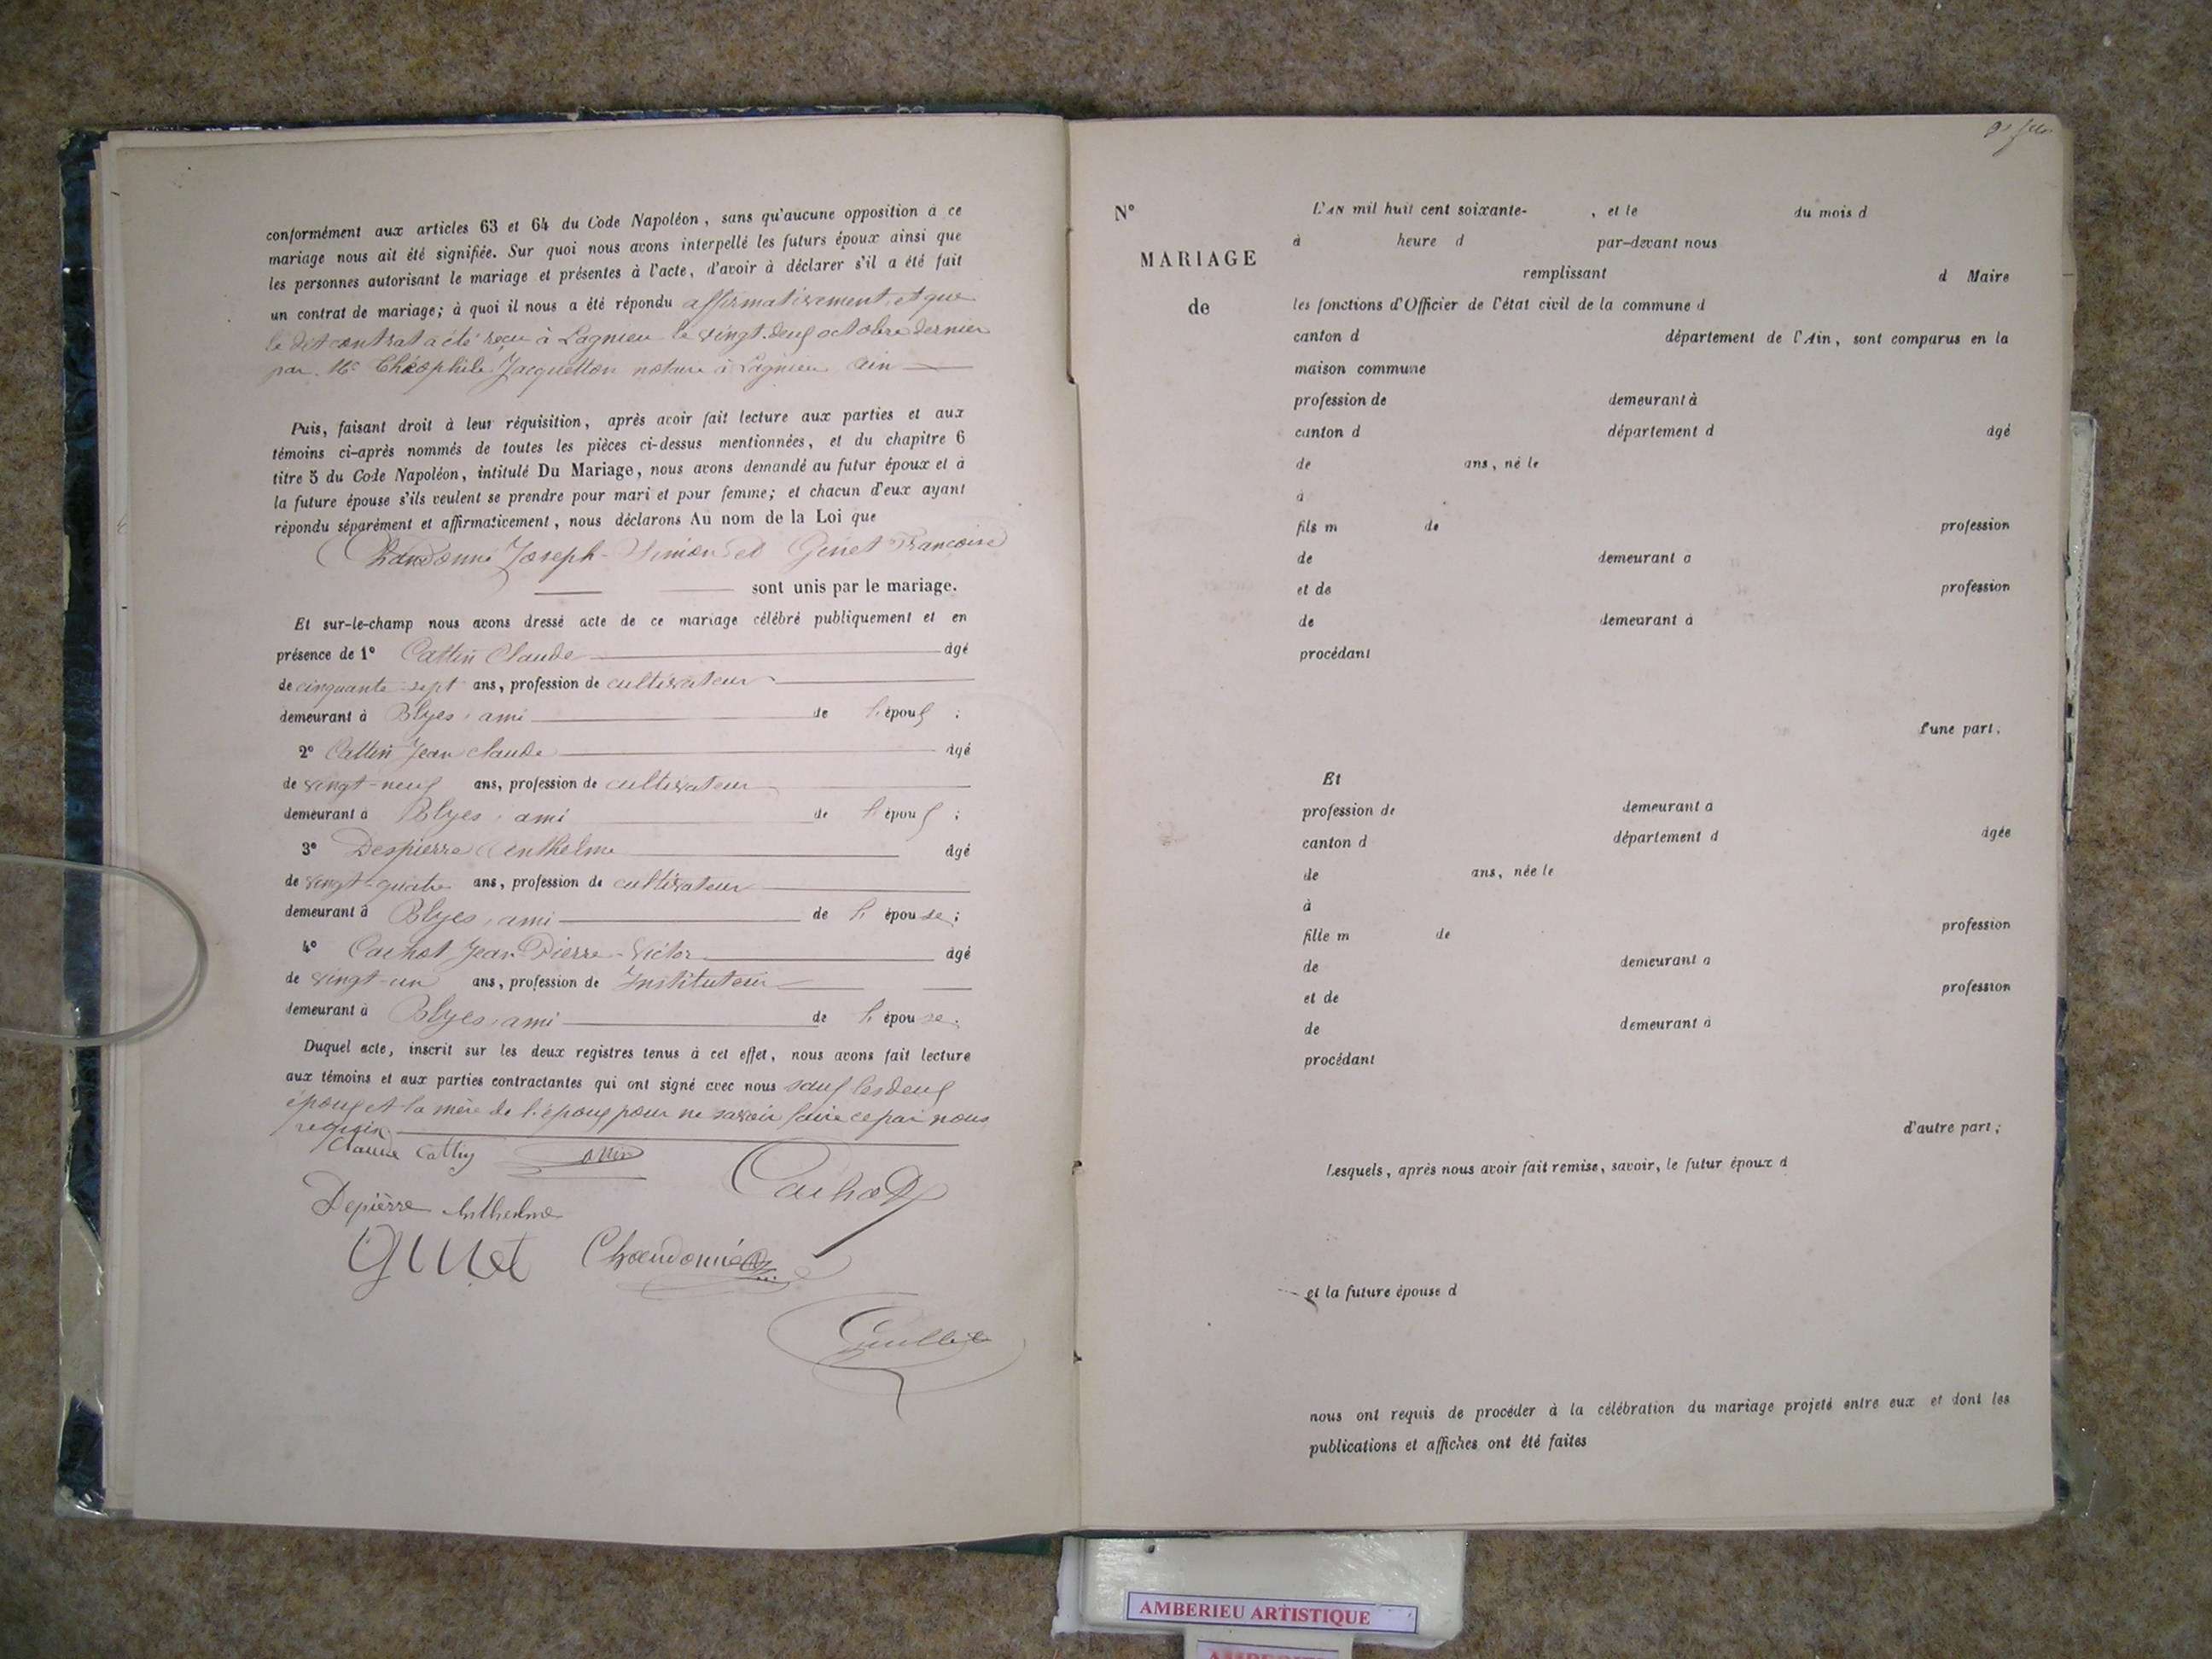 conformément aux articles 63 et 64 du Code Napoléon, sans qu'aucune opposition à ce
mariage nous ait été signifiée. Sur quoi nous avons interpellé les futurs époux ainsi que
les personnes autorisant le mariage et présentes à l'acte, d'avoir à déclarer s'il a été fait
un contrat de mariage; à quoi il nous a été répondu affirmativement, et que
le dit contrat a été reçu à Lagnieu le vingt-deux octobre dernier
par Me Théophile Jacquetton notaire à Lagnieu ain
Puis, faisant droit à leur réquisition, après avoir fait lecture aux parties et aux
témoins ci-après nommés de toutes les pièces ci-dessus mentionnées, et du chapitre 6
titre 5 du Code Napoléon, intitulé Du Mariage, nous avons demandé au futur époux et à
la future épouse s'ils veulent se prendre pour mari et pour femme; et chacun d'eux ayant
répondu séparément et affirmativement, nous déclarons Au nom de la Loi que
Chandonné Joseph-Simon et Ginet Françoise
sont unis par le mariage.
Et sur-le-champ nous avons dressé acte de ce mariage célébré publiquement et en
présence de 1° Cattin Claude âgé
de cinquante-sept ans, profession de cultivateur
demeurant à Blyes, ami de l'époux ;
2° Cattin Jean Claude âgé
de vingt-neuf ans, profession de cultivateur
demeurant à Blyes, ami de l'époux ;
3° Despierre Anthelme âgé
de vingt-quatre ans, profession de cultivateur
demeurant à Blyes, ami de l'épouse ;
4° Cachot Jean-Pierre-Victor âgé
de vingt-un ans, profession de Instituteur
demeurant à Blyes, ami de l'épouse.
Duquel acte, inscrit sur les deux registres tenus à cet effet, nous avons fait lecture
aux témoins et aux parties contractantes qui ont signé avec nous sauf les deux
époux et la mère de l'époux pour ne savoir faire ce par nous
requis.
Claude Cattin
Depièrre Anthelme Cachot
Ginet Chandonné
N°
MARIAGE
de
L'AN mil huit cent soixante- , et le du mois d
à heure d par-devant nous
remplissant d Maire
les fonctions d'Officier de l'état civil de la commune d
canton d département de l'Ain, sont comparus en la
maison commune
profession de demeurant à
canton d département d âgé
de ans, né le
à
fils m de profession
de demeurant à
et de profession
de demeurant à
procédant
l'une part.
Et
profession de demeurant à
canton d département d âgée
de ans, née le
à
fille m de profession
de demeurant à
et de profession
de demeurant à
procédant
d'autre part;
Lesquels, après nous avoir fait remise, savoir, le futur époux d
et la future épouse d
nous ont requis de procéder à la célébration du mariage projeté entre eux et dont les
publications et affiches ont été faites
AMBERIEU ARTISTIQUE